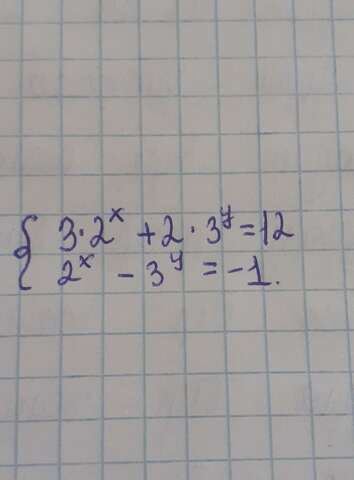 3·2ˣ + 2·3ʸ = 12
2ˣ - 3ʸ = -1.